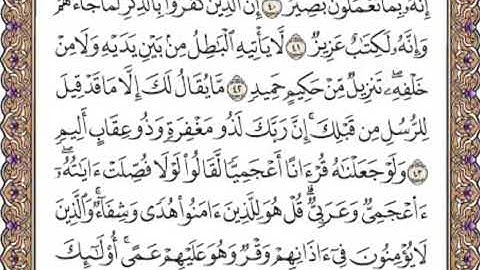 إِنَّهُۥ بِمَا تَعۡمَلُونَ بَصِيرٌ ٤٠ إِنَّ ٱلَّذِينَ كَفَرُواْ بِٱلذِّكۡرِ لَمَّا جَآءَهُمۡۖ
وَإِنَّهُۥ لَكِتَٰبٌ عَزِيزٞ ٤١ لَّا يَأۡتِيهِ ٱلۡبَٰطِلُ مِنۢ بَيۡنِ يَدَيۡهِ وَلَا مِنۡ
خَلۡفِهِۦۖ تَنزِيلٞ مِّنۡ حَكِيمٍ حَمِيدٖ ٤٢ مَّا يُقَالُ لَكَ إِلَّا مَا قَدۡ قِيلَ
لِلرُّسُلِ مِن قَبۡلِكَۚ إِنَّ رَبَّكَ لَذُو مَغۡفِرَةٖ وَذُو عِقَابٍ أَلِيمٖ
٤٣ وَلَوۡ جَعَلۡنَٰهُ قُرۡءَانًا أَعۡجَمِيّٗا لَّقَالُواْ لَوۡلَا فُصِّلَتۡ ءَايَٰتُهُۥٓۖ
ءَا۬عۡجَمِيّٞ وَعَرَبِيّٞۗ قُلۡ هُوَ لِلَّذِينَ ءَامَنُواْ هُدٗى وَشِفَآءٞۚ وَٱلَّذِينَ
لَا يُؤۡمِنُونَ فِيٓ ءَاذَانِهِمۡ وَقۡرٞ وَهُوَ عَلَيۡهِمۡ عَمًىۚ أُوْلَٰٓئِكَ